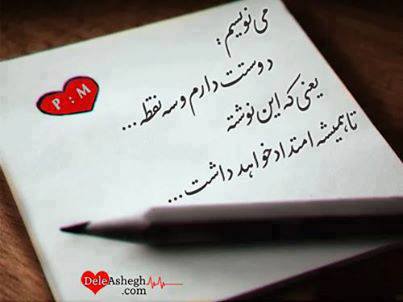 می نویسم :
دوستت دارم و سه نقطه ...
یعنی که این نوشته
تا همیشه امتداد خواهد داشت ...
P : M
DeleAshegh
.com